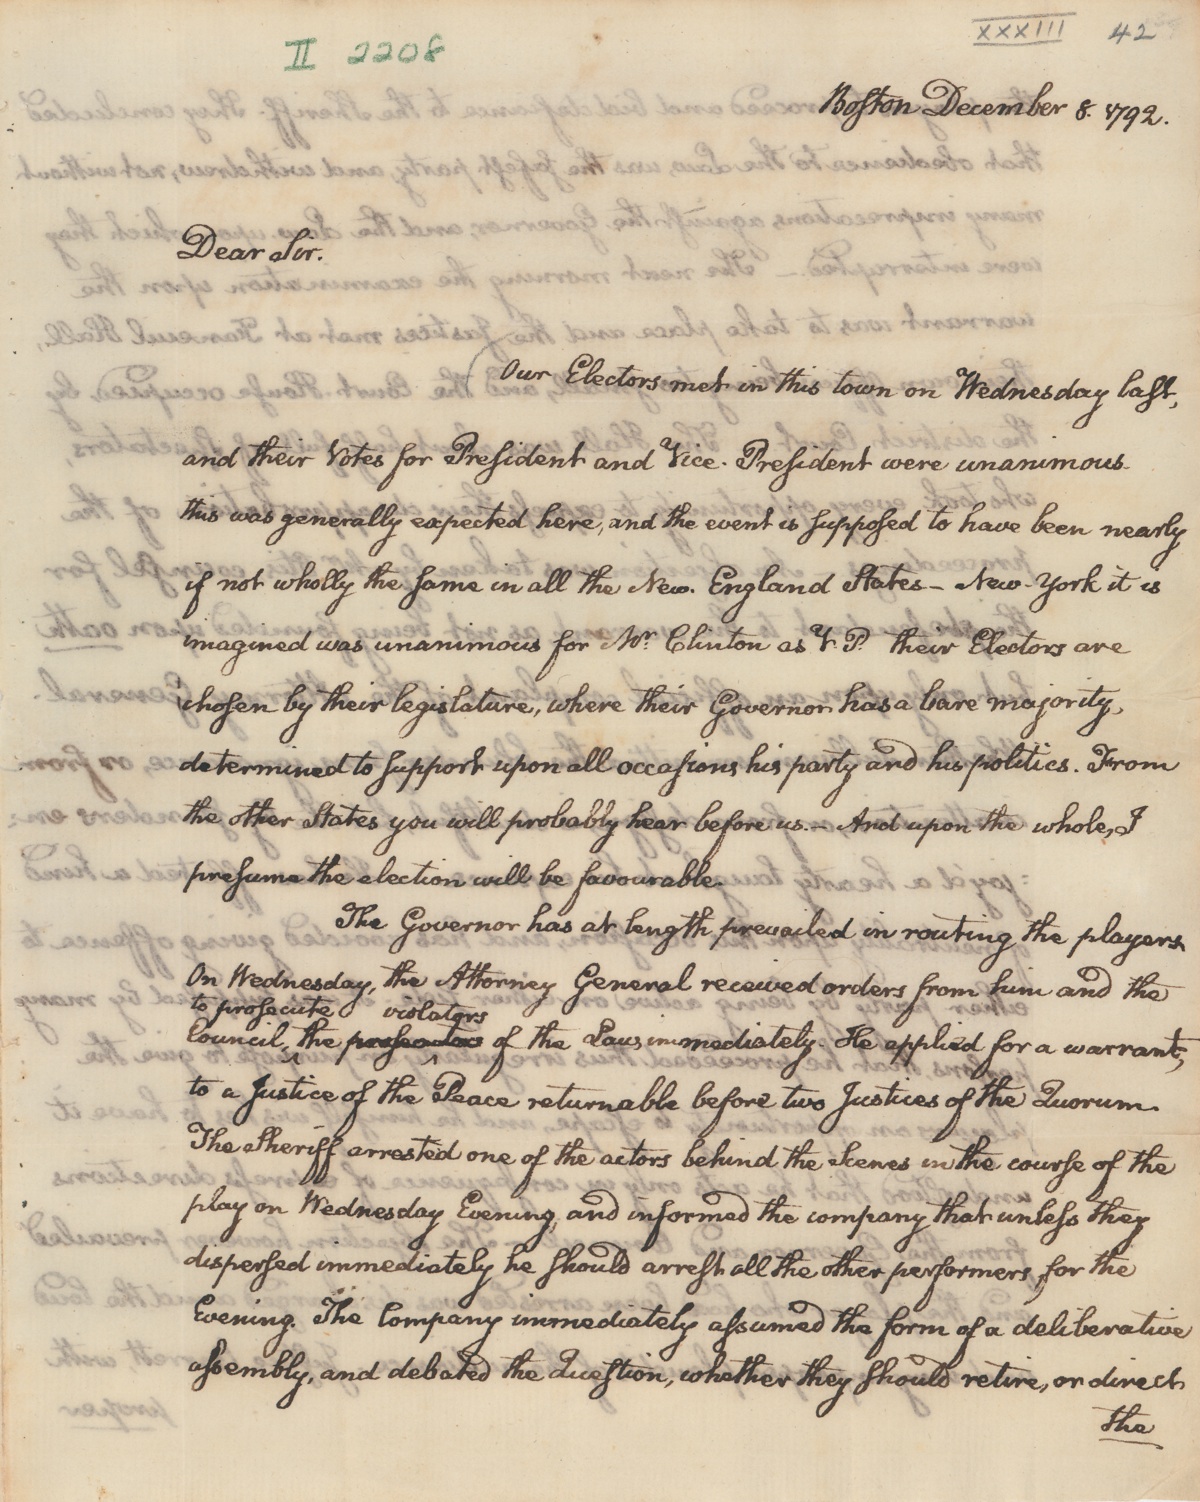 XXXIII 42
II 2208
Boston December 8. 1792.
Dear Sir.
Our Electors met in this town on Wednesday last,
and their Votes for President and Vice-President were unanimous.
this was generally expected here, and the event is supposed to have been nearly
if not wholly the same in all the New-England States — New-York it is
imagined was unanimous for Mr. Clinton as V.P. their Electors are
chosen by their legislature, where their Governor has a bare majority,
determined to support upon all occasions his party and his politics. From
the other States you will probably hear before us. — And upon the whole, I
presume the election will be favourable.
The Governor has at length prevailed in routing the players
On Wednesday, the Attorney General received orders from him and the
to prosecute violators
Council, the prosecutors of the Laws immediately. He applied for a warrant,
to a Justice of the Peace returnable before two Justices of the Quorum.
The Sheriff arrested one of the actors behind the Scenes in the course of the
play on Wednesday Evening, and informed the company that unless they
dispersed immediately he should arrest all the other performers, for the
Evening. The Company immediately assumed the form of a deliberative
assembly, and debated the Question, whether they should retire, or direct
the